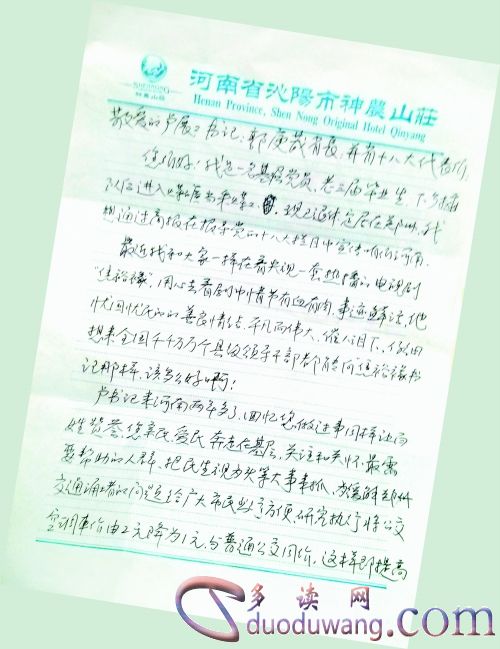 SHENNONG
神農山莊
河南省沁陽市神農山莊
Henan Province, Shen Nong Original Hotel Qinyang
敬爱的卢展工书记、郭庚茂省长，并省十八大代表们
您们好！我是一名基层党员，老三届毕业生，下乡插
队后进入 现已退休定居在郑州，我
想通过商报在报导党的十八大栏目中宣传咱们河南。
最近我和大家一样在看央视一套热播的电视剧
"焦裕禄"，用心去看剧中情节有血有肉，事迹鲜活，他
忧国忧民的善良情结，平凡而伟大，催人泪下，
想来全国千千万万个县级领导干部都能向焦裕禄书
记那样，该多么好啊！
卢书记来河南两年多了，回忆您做过事同样让百
姓赞誉，您亲民、爱民、奔走在基层，关注和关怀最需
要帮助的人群，把民生视为头等大事来抓，为缓解郑州
交通拥堵的问题给广大市民出行方便，研究执行将公交
空调车价由2元降为1元，与普通公交同价，这样即提高
多读网
duoduwang.com